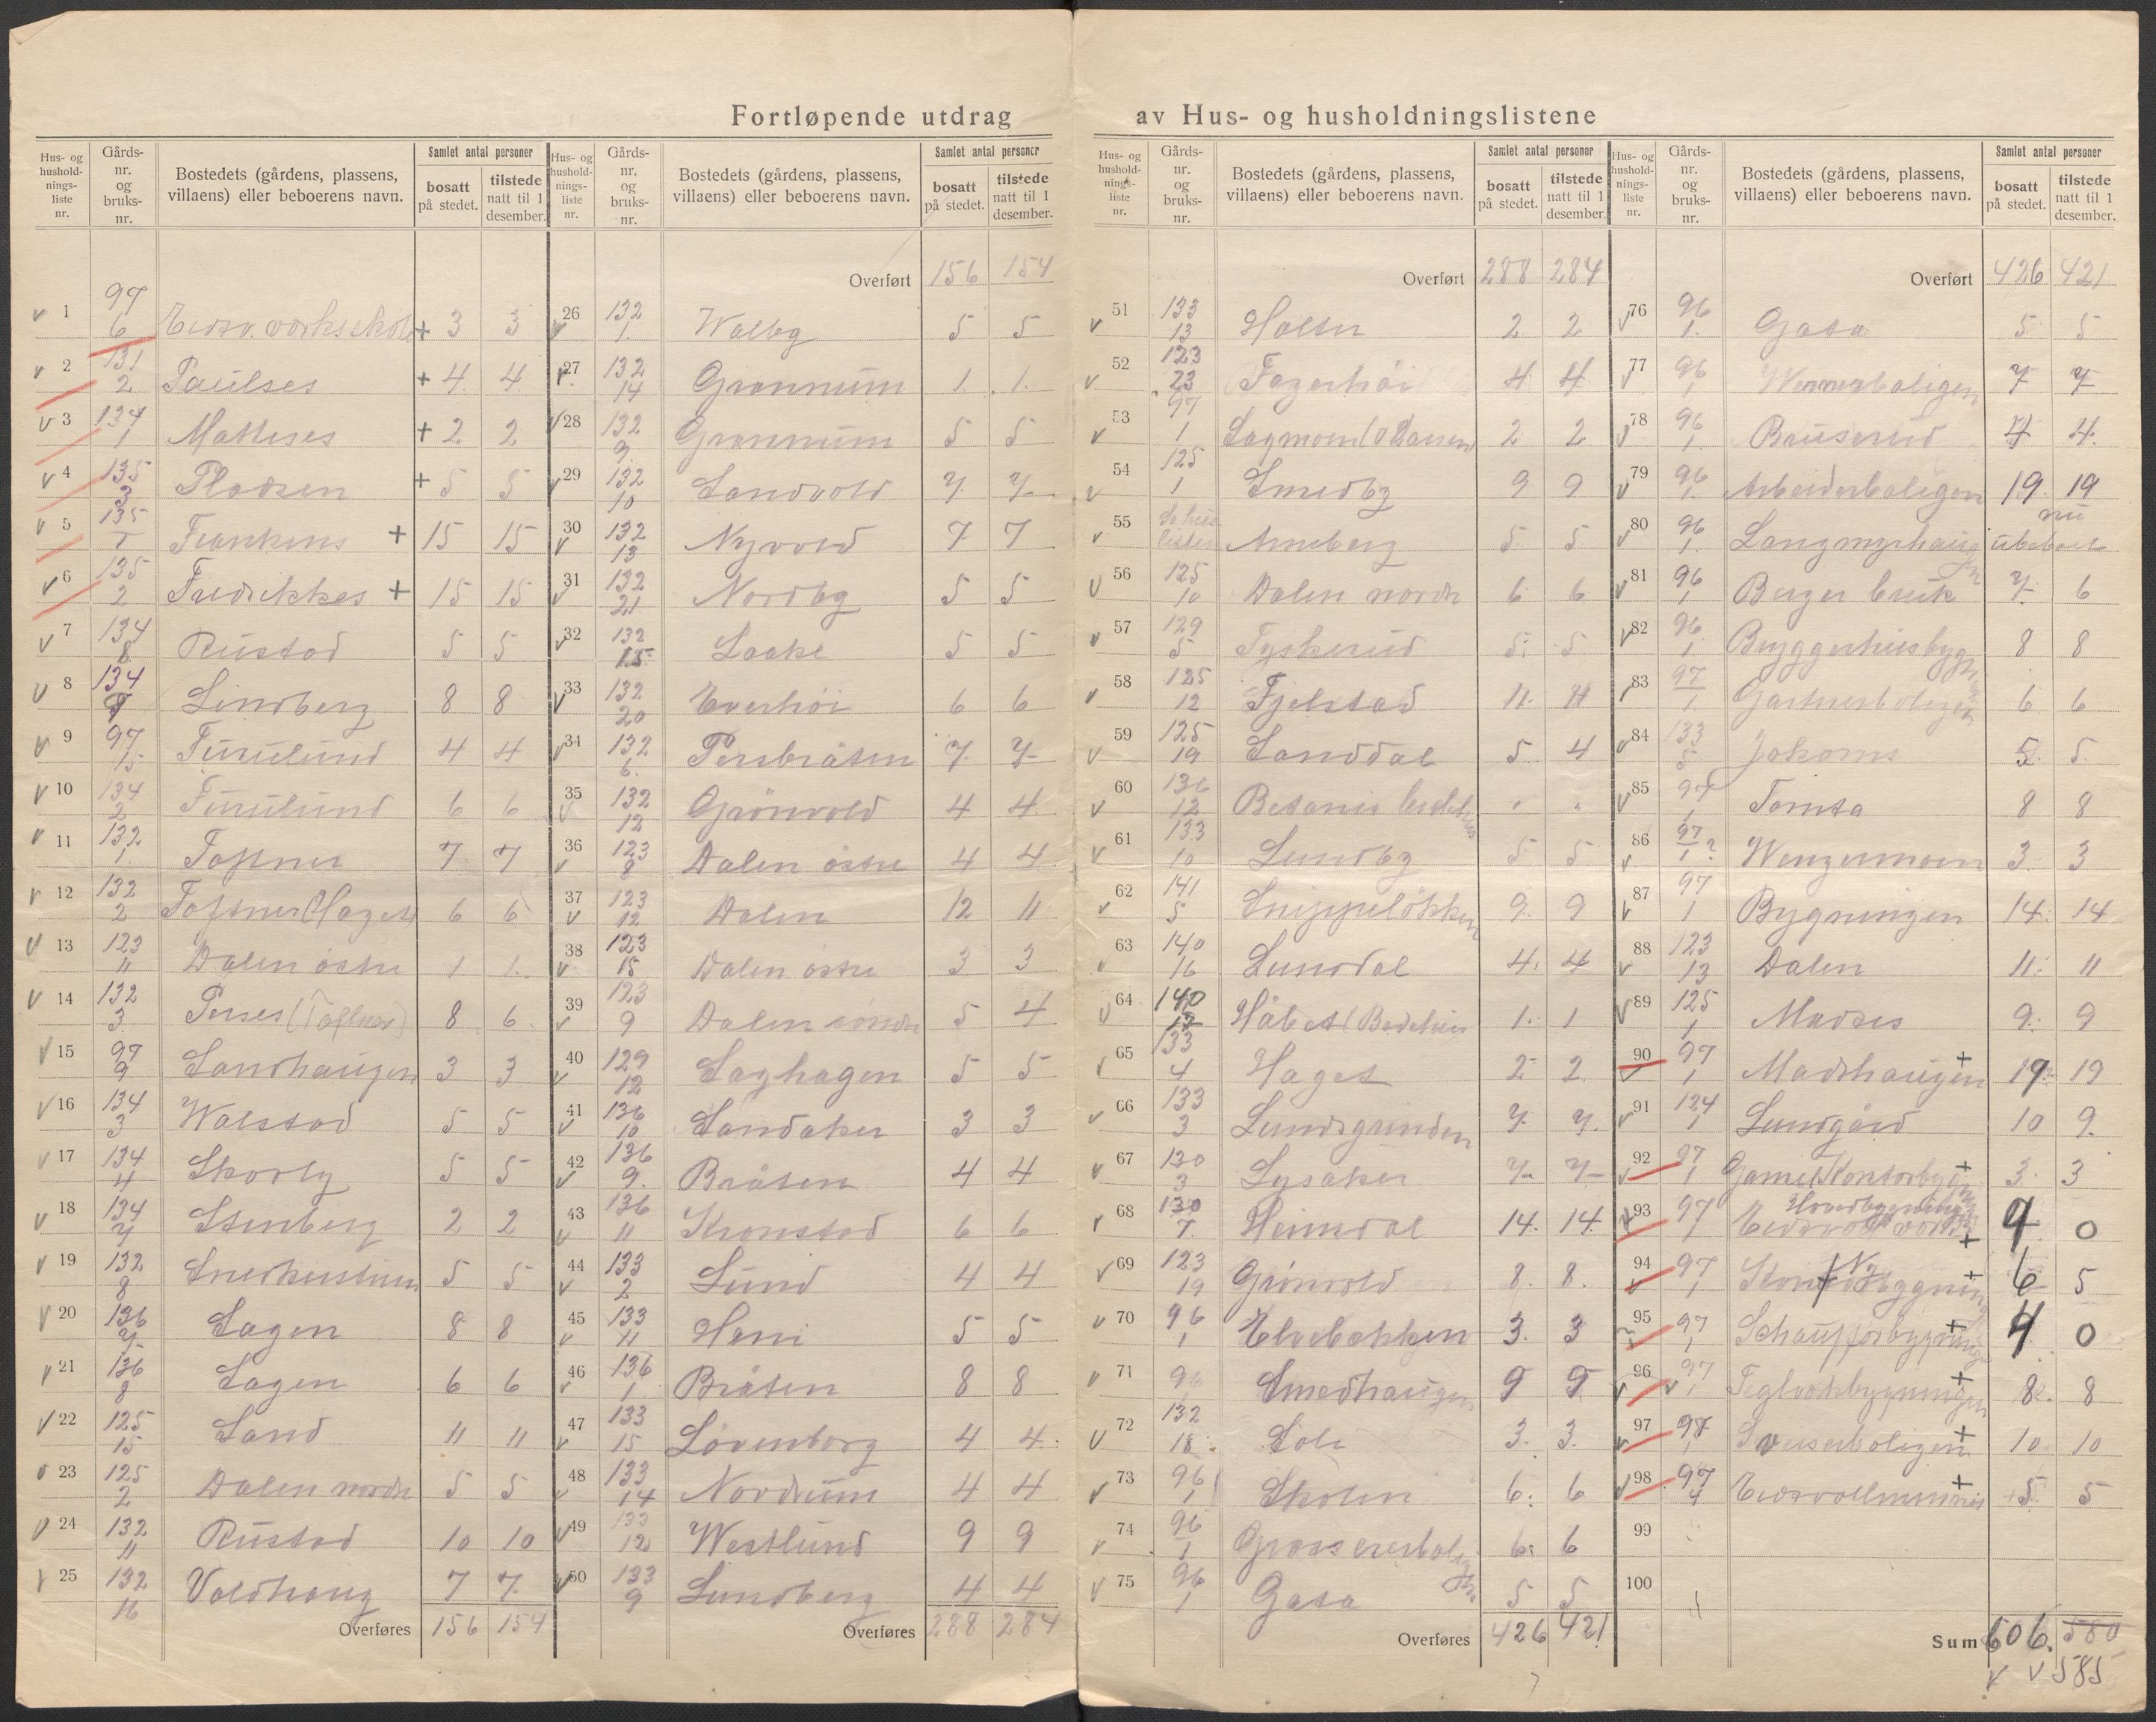 Fortløpende utdrag av Hus- og husholdningslistene
Hus- og hushold-nings-liste nr. | Gårds-nr. og bruks-nr. | Bostedets (gårdens, plassens, villaens) eller beboerens navn. | Samlet antal personer | bosatt på stedet. | tilstede natt til 1 desember.
1 97/6 Eidsv. verks skole + 3 3
2 131/2 Paulses + 4 4
3 134/1 Matheses + 2 2
4 135/3 Pladsen + 5 5
5 135/1 Frankens + 15 15
6 135/2 Fredrikkes + 15 15
7 134/8 Rustad 5 5
8 134/9 Lindberg 8 8
9 97/15 Furulund 4 4
10 134/2 Furulund 6 6
11 132/1 Tofsner 7 7
12 132/2 Tofsner (Haget) 6 6
13 123/11 Dalen østre 1 1
14 132/3 Perses (Tofsner) 8 6
15 97/9 Sandhaugen 3 3
16 134/3 Walstad 5 5
17 134/4 Skorly 5 5
18 134/7 Stenberg 2 2
19 132/8 Snekkerstuen 5 5
20 136/7 Sagen 8 8
21 136/8 Sagen 6 6
22 125/15 Sand 11 11
23 125/2 Dalen nordre 5 5
24 132/11 Rustad 10 10
25 132/16 Voldhaug 7 7
Overføres 156 154
Overført 156 154
26 132/1 Walby 5 5
27 132/14 Grannum 1 1
28 132/9 Grannum 5 5
29 132/10 Sandvold 7 7
30 132/13 Nyvold 7 7
31 132/21 Nordby 5 5
32 132/15 Laake 5 5
33 132/20 Everhöi 6 6
34 132/6 Persbråten 7 7
35 132/12 Grönvold 4 4
36 123/8 Dalen östre 4 4
37 123/12 Dalen 12 11
38 123/15 Dalen østre 3 3
39 123/9 Dalen söndre 5 4
40 129/12 Saghagen 5 5
41 136/10 Sandaker 3 3
42 136/9 Bråten 4 4
43 136/11 Kronstad 6 6
44 133/2 Lund 4 4
45 133/11 Heni 5 5
46 136/1 Bråten 8 8
47 133/15 Lövenborg 4 4
48 133/14 Nordrum 4 4
49 133/12 Westlund 9 9
50 133/9 Lundberg 4 4
Overføres 288 284
Overført 288 284
51 133/13 Holter 2 2
52 123/23 Fagerhöi 4 4
53 97/1 Sagmoen 2 2
54 125/1 Smedby 9 9
55 Arneberg 5 5
56 125/10 Dalen nordre 6 6
57 129/5 Tyskerud 5 5
58 125/12 Fjelstad 11 11
59 125/19 Sanddal 5 4
60 136/12 Betania
61 133/10 Lundby 5 5
62 141/5 Snippelökken 9 9
63 140/16 Lunddal 4 4
64 140/17 Håbet (Bedehus 1 1
65 133/4 Haget 2 2
66 133/3 Lundsgrinden 7 7
67 130/3 Lysaker 7 7
68 130/7 Heimdal 14 14
69 123/19 Grönvold 8 8
70 96/1 Elvebakken 3 3
71 96/1 Smedhaugen 9 9
72 132/18 Sole 3 3
73 96/1 Skolen 6 6
74 96/1 Grossererboligen 6 6
75 96/1 Gata 5 5
Overføres 426 421
Overført 426 421
76 96/1 Gata 5 5
77 96/1 Wernerboligen 7 7
78 96/1 Bruserud 4 4
79 96/1 Arbeiderboligen 19 19
80 96/1 Langmyrhaugen nu ubeboet
81 96/1 Berger bruk 7 6
82 96/1 Bryggerhusbygn 8 8
83 97/1 Gartnerboligen 6 6
84 133/5 Jakoms 5 5
85 97/1 Tomta 8 8
86 97/1? Wengermoen 3 3
87 97/1 Bygningen 14 14
88 123/13 Dalen 11 11
89 125/1 Madses 9 9
90 97/1 Madshaugen + 19 19
91 124/1 Lundgård 10 9
92 97/1 Gamel Kontorbygn + 3 3
93 97/1 Hovedbygningen Eidsvold verk + 9 0
94 97/1 Ny Kontorbygning + 6 5
95 97/1 Schaufförbygning + 4 0
96 97/1 Teglverkbygningen + 8 8
97 97/1 Sveiserboligen + 10 10
98 97/4 Eidsvollsminne + 5 5
99
100
Sum 606 580
585